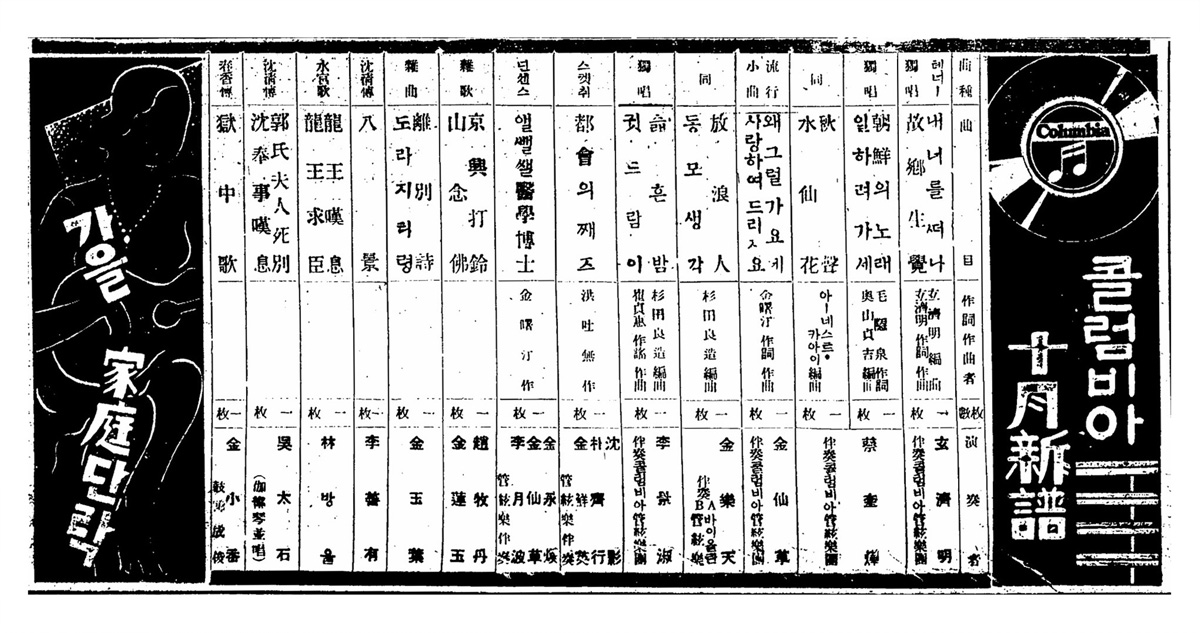 Columbia
콜럼비아
十月新譜
曲種
曲目
作詞作曲者
枚數
演奏者
테너ー獨唱
내너를떠나
故鄕生覺
玄濟明編曲
玄濟明作詞作曲
一枚
玄濟明
伴奏콜럼비아管絃樂團
獨唱
朝鮮의노래
일하려가세
毛隱泉作詞
奧山貞吉編曲
一枚
蔡奎燁
同
秋聲
水仙花
아ー네스트・카아이編曲
伴奏콜럼비아管絃樂團
流行小曲
왜그럴가요
사랑하여드리지요
金曙汀作詞作曲
一枚
金仙草
伴奏콜럼비아管絃樂團
同
放浪人
동모생각
杉田良造編曲
一枚
金樂天
伴奏A바이올린
B管絃樂
獨唱
슲흔밤
귓드람이
杉田良造編曲
作謠作曲
一枚
李景淑
伴奏콜럼비아管絃樂團
스켓취
都會의째즈
洪吐無作
一枚
沈影
朴齊行
金鮮英
管絃樂伴奏
넌센스
醫學博士
金曙汀作
一枚
金永煥
金仙草
李月波
管絃樂伴奏
雜歌
京興打鈴
山念佛
一枚
趙牧丹
金蓮玉
雜曲
離別詩
도라지타령
一枚
金玉葉
沈淸傳
八景
一枚
李善有
水宮歌
龍王嘆息
龍王求臣
一枚
林방울
沈淸傳
郭氏夫人死別
沈奉事嘆息
一枚
吳太石
(伽倻琴並唱)
春香傳
獄中歌
一枚
金小香
가을
家庭단락